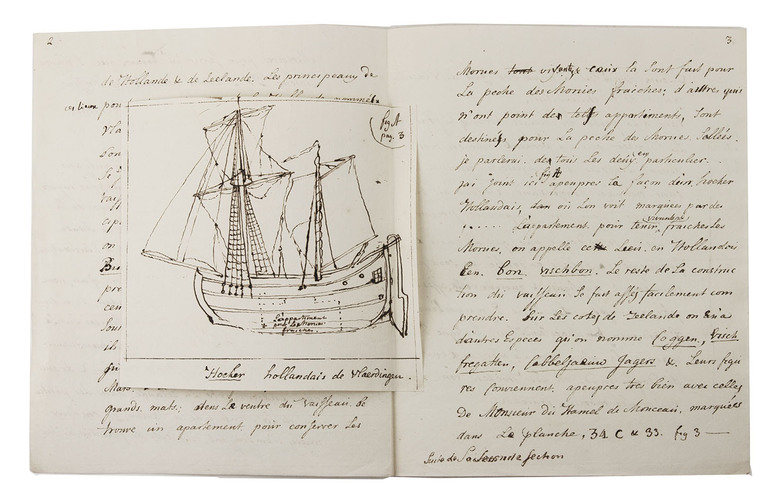 2.
de Hollande & de Zeelande. Les principeaux de
pou
son
on
pre
cen
sou
ils
Mats,
grands mats; dens le ventre du vaisseau se
trouve un apartement pour conserver les
fig A
pag. 3
L'appartement
pour les Morues
fraiches
Hocker hollandais de Vlaerdingen.
3.
Morues tout vivantes ceux la sont fait pour
La peche des Morues fraiches; d'autres qui
n'ont point de tels appartements, sont
destinés pour La peche des Morues Sallées.
je parlerai de tous Les deux en particulier.
j'ai joint ici fig A apeupres La façon d'un hocker
Hollandais, où l'on voit marquées par des
...... L'apartement pour tenir vivantes fraiches les
Morues, on appelle cette Leeu en Hollandois
Een Bon vischbon. Le reste de La construc
tion du vaisseau se fait assés facilement com
prendre. Sur Les cotes de Zeelande on en a
d'autres Especes qu'on nomme Coggen, Visch
fregatten, Cabbeljaeuw Jagers &. Leurs figu
res conviennent, apeupres très bien avec celles
De Monsieur Du Hamel de Monceau, marquées
dans La planche, 34 C & 33. fig 3 —
Suite de La Seconde Section